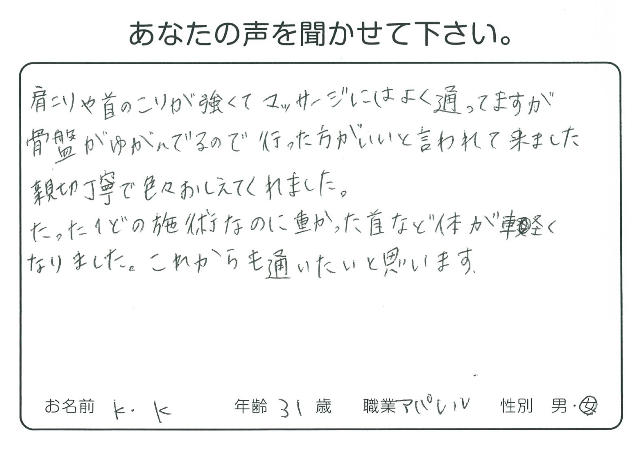 あなたの声を聞かせて下さい。
肩こりや首のこりが強くてマッサージにはよく通ってますが
骨盤がゆがんでるので行った方がいいと言われて来ました
親切丁寧で色々おしえてくれました。
たった1どの施術なのに重かった首など体が軽く
なりました。これからも通いたいと思います
お名前 K.K 年齢 31 歳 職業 アパレル 性別 男・女